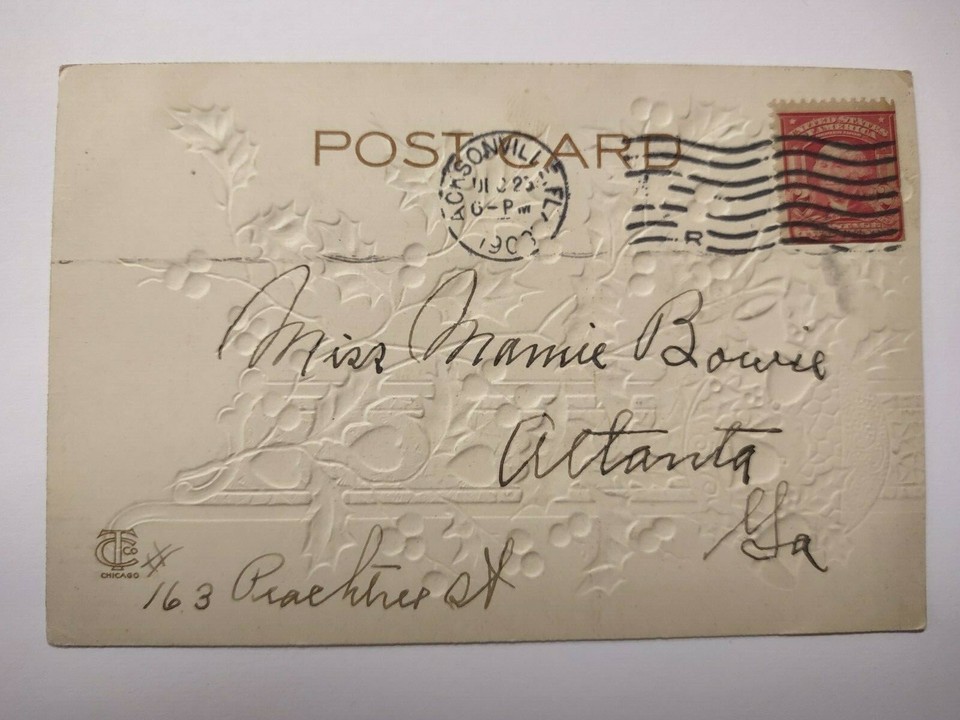 POST CARD
JACKSONVILLE, FLA.
DEC 23
6-PM
UNITED STATES
R
Miss Mamie Bowie
Atlanta
Ga
TC Co
CHICAGO
#
163 Peachtree St